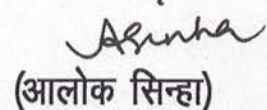 Asinha
(आलोक सिन्हा)